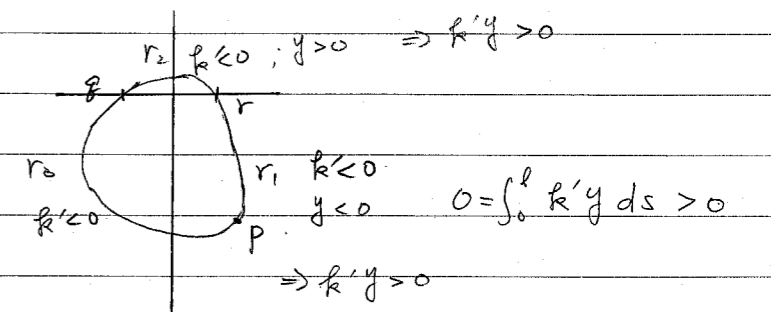 r₂ k'<0 ; y>0 ⇒ k'y >0
q r
r₃ r₁ k'<0
k'<0 y<0 0=∫₀ˡ k'y ds >0
p.
⇒ k'y>0